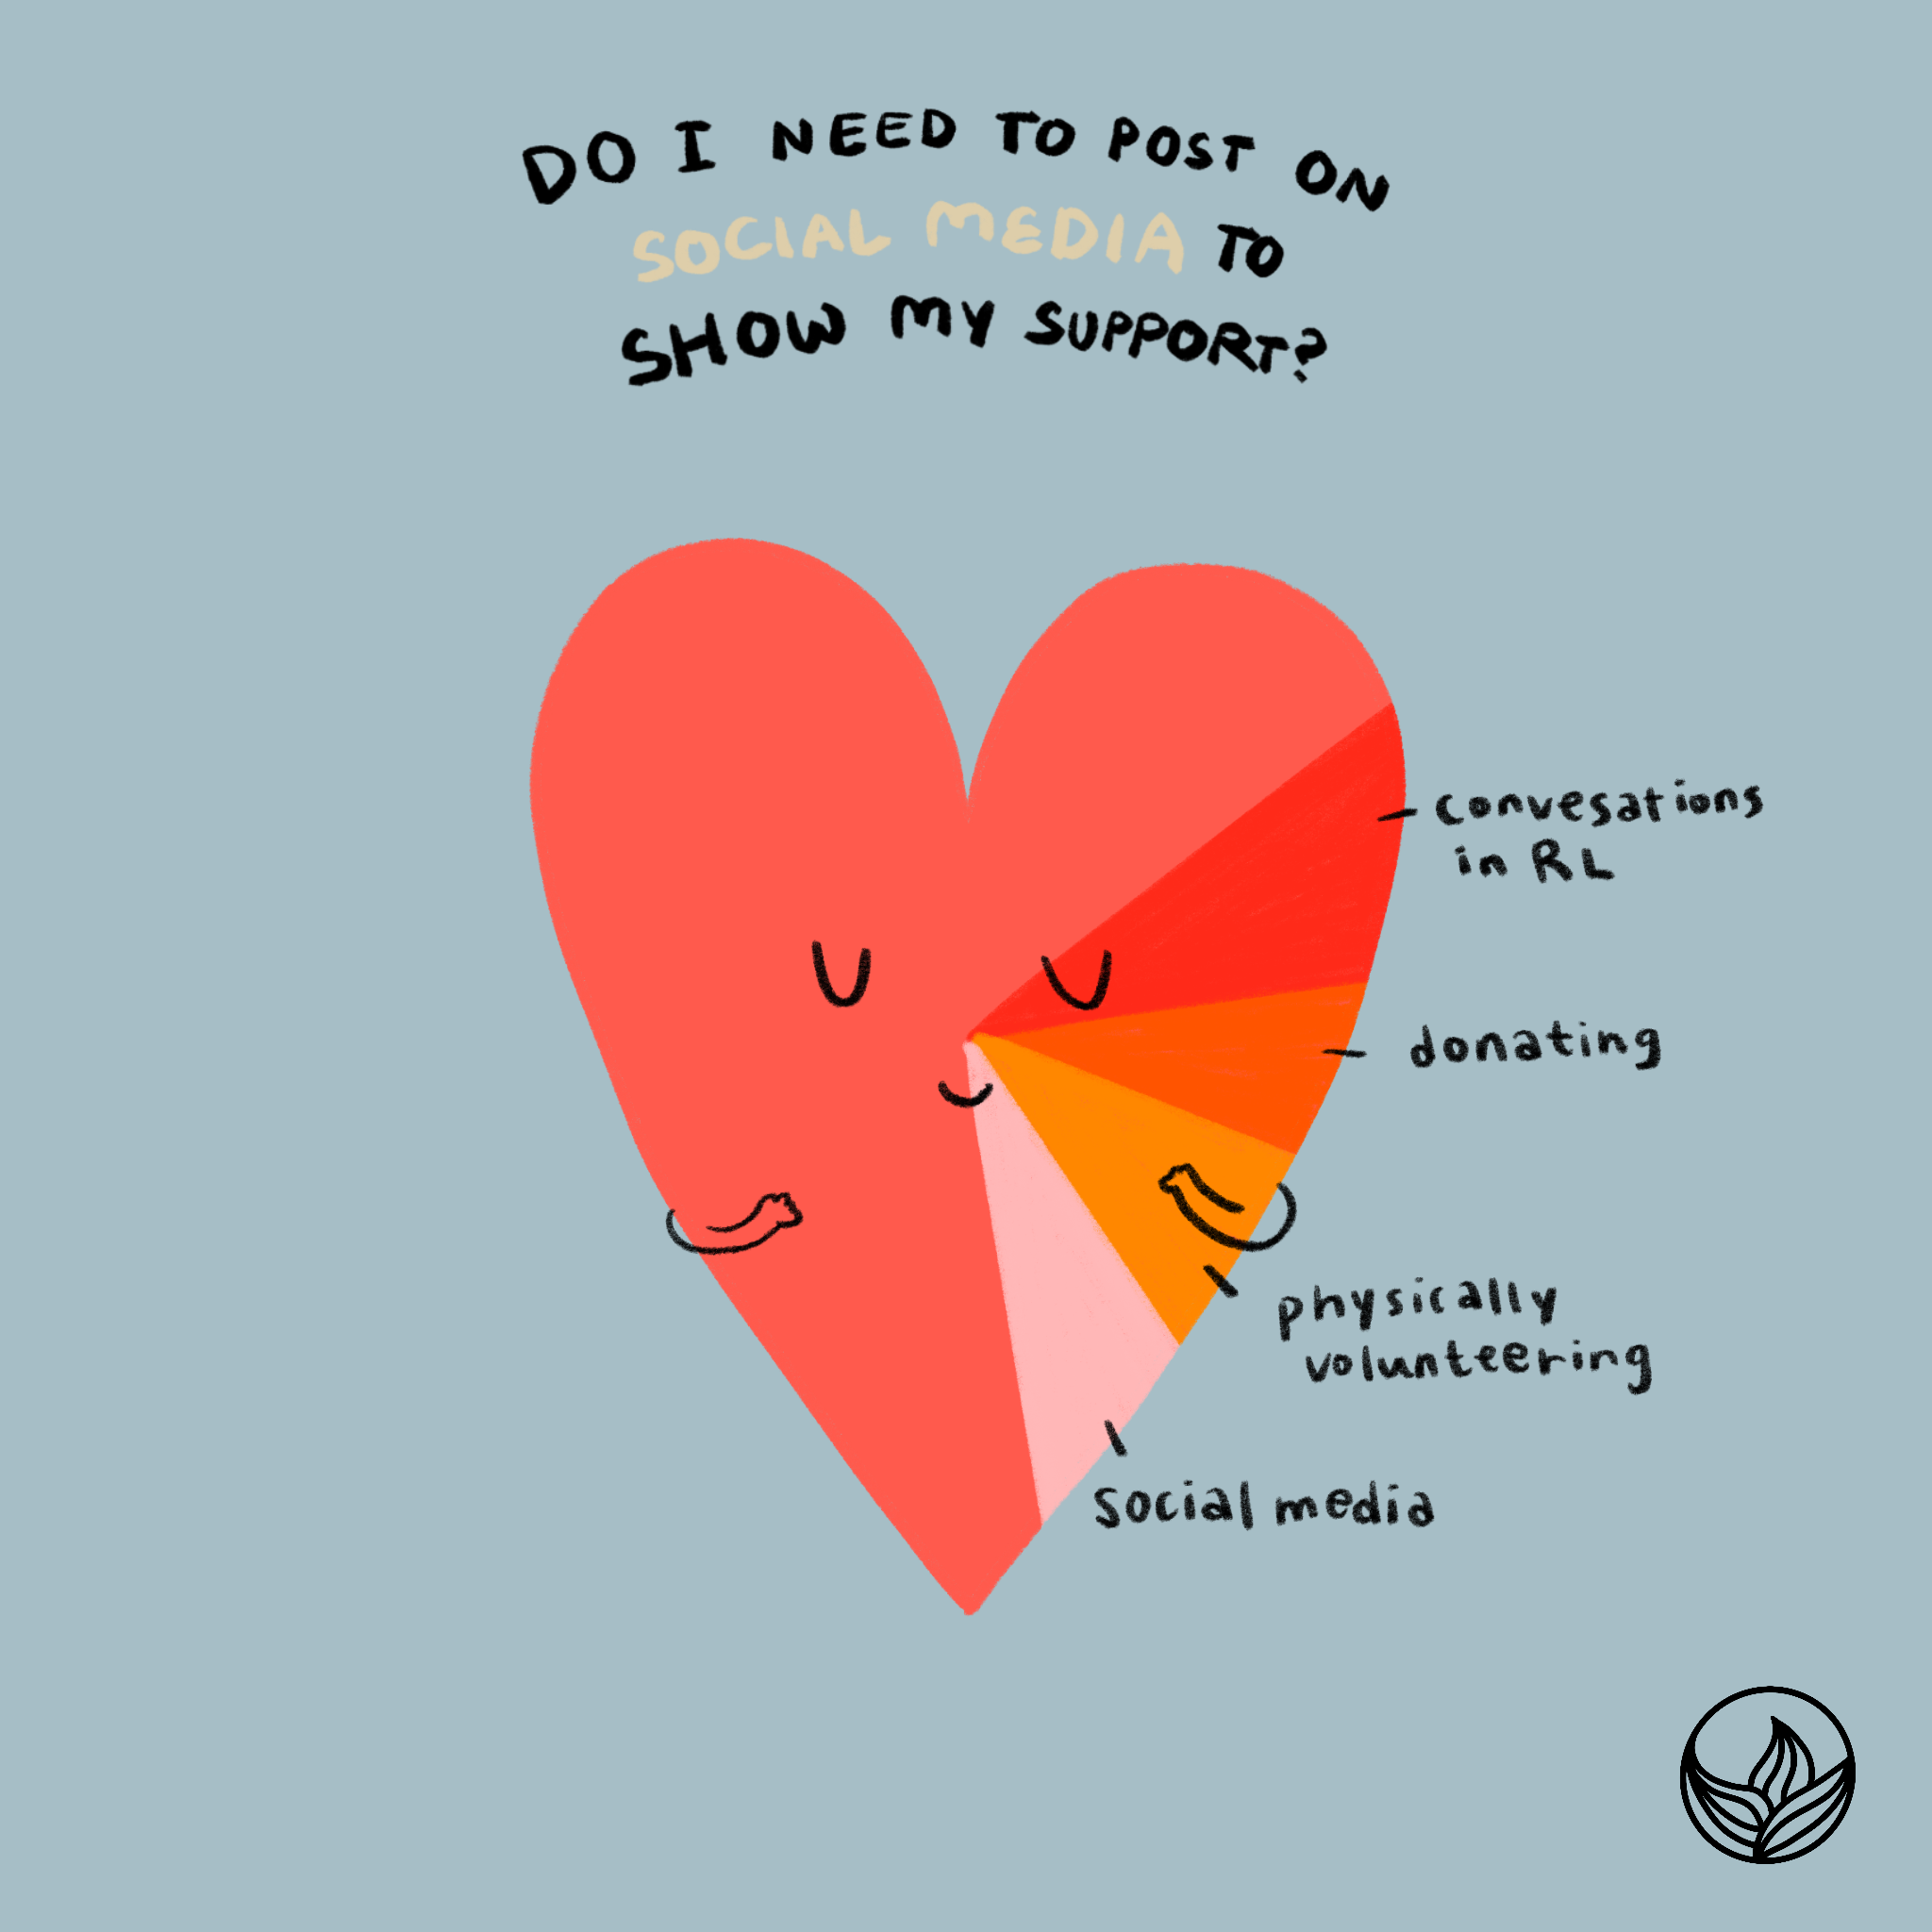 DO I NEED TO POST ON
SOCIAL MEDIA TO
SHOW MY SUPPORT?
convesations
in RL
donating
physically
volunteering
social media